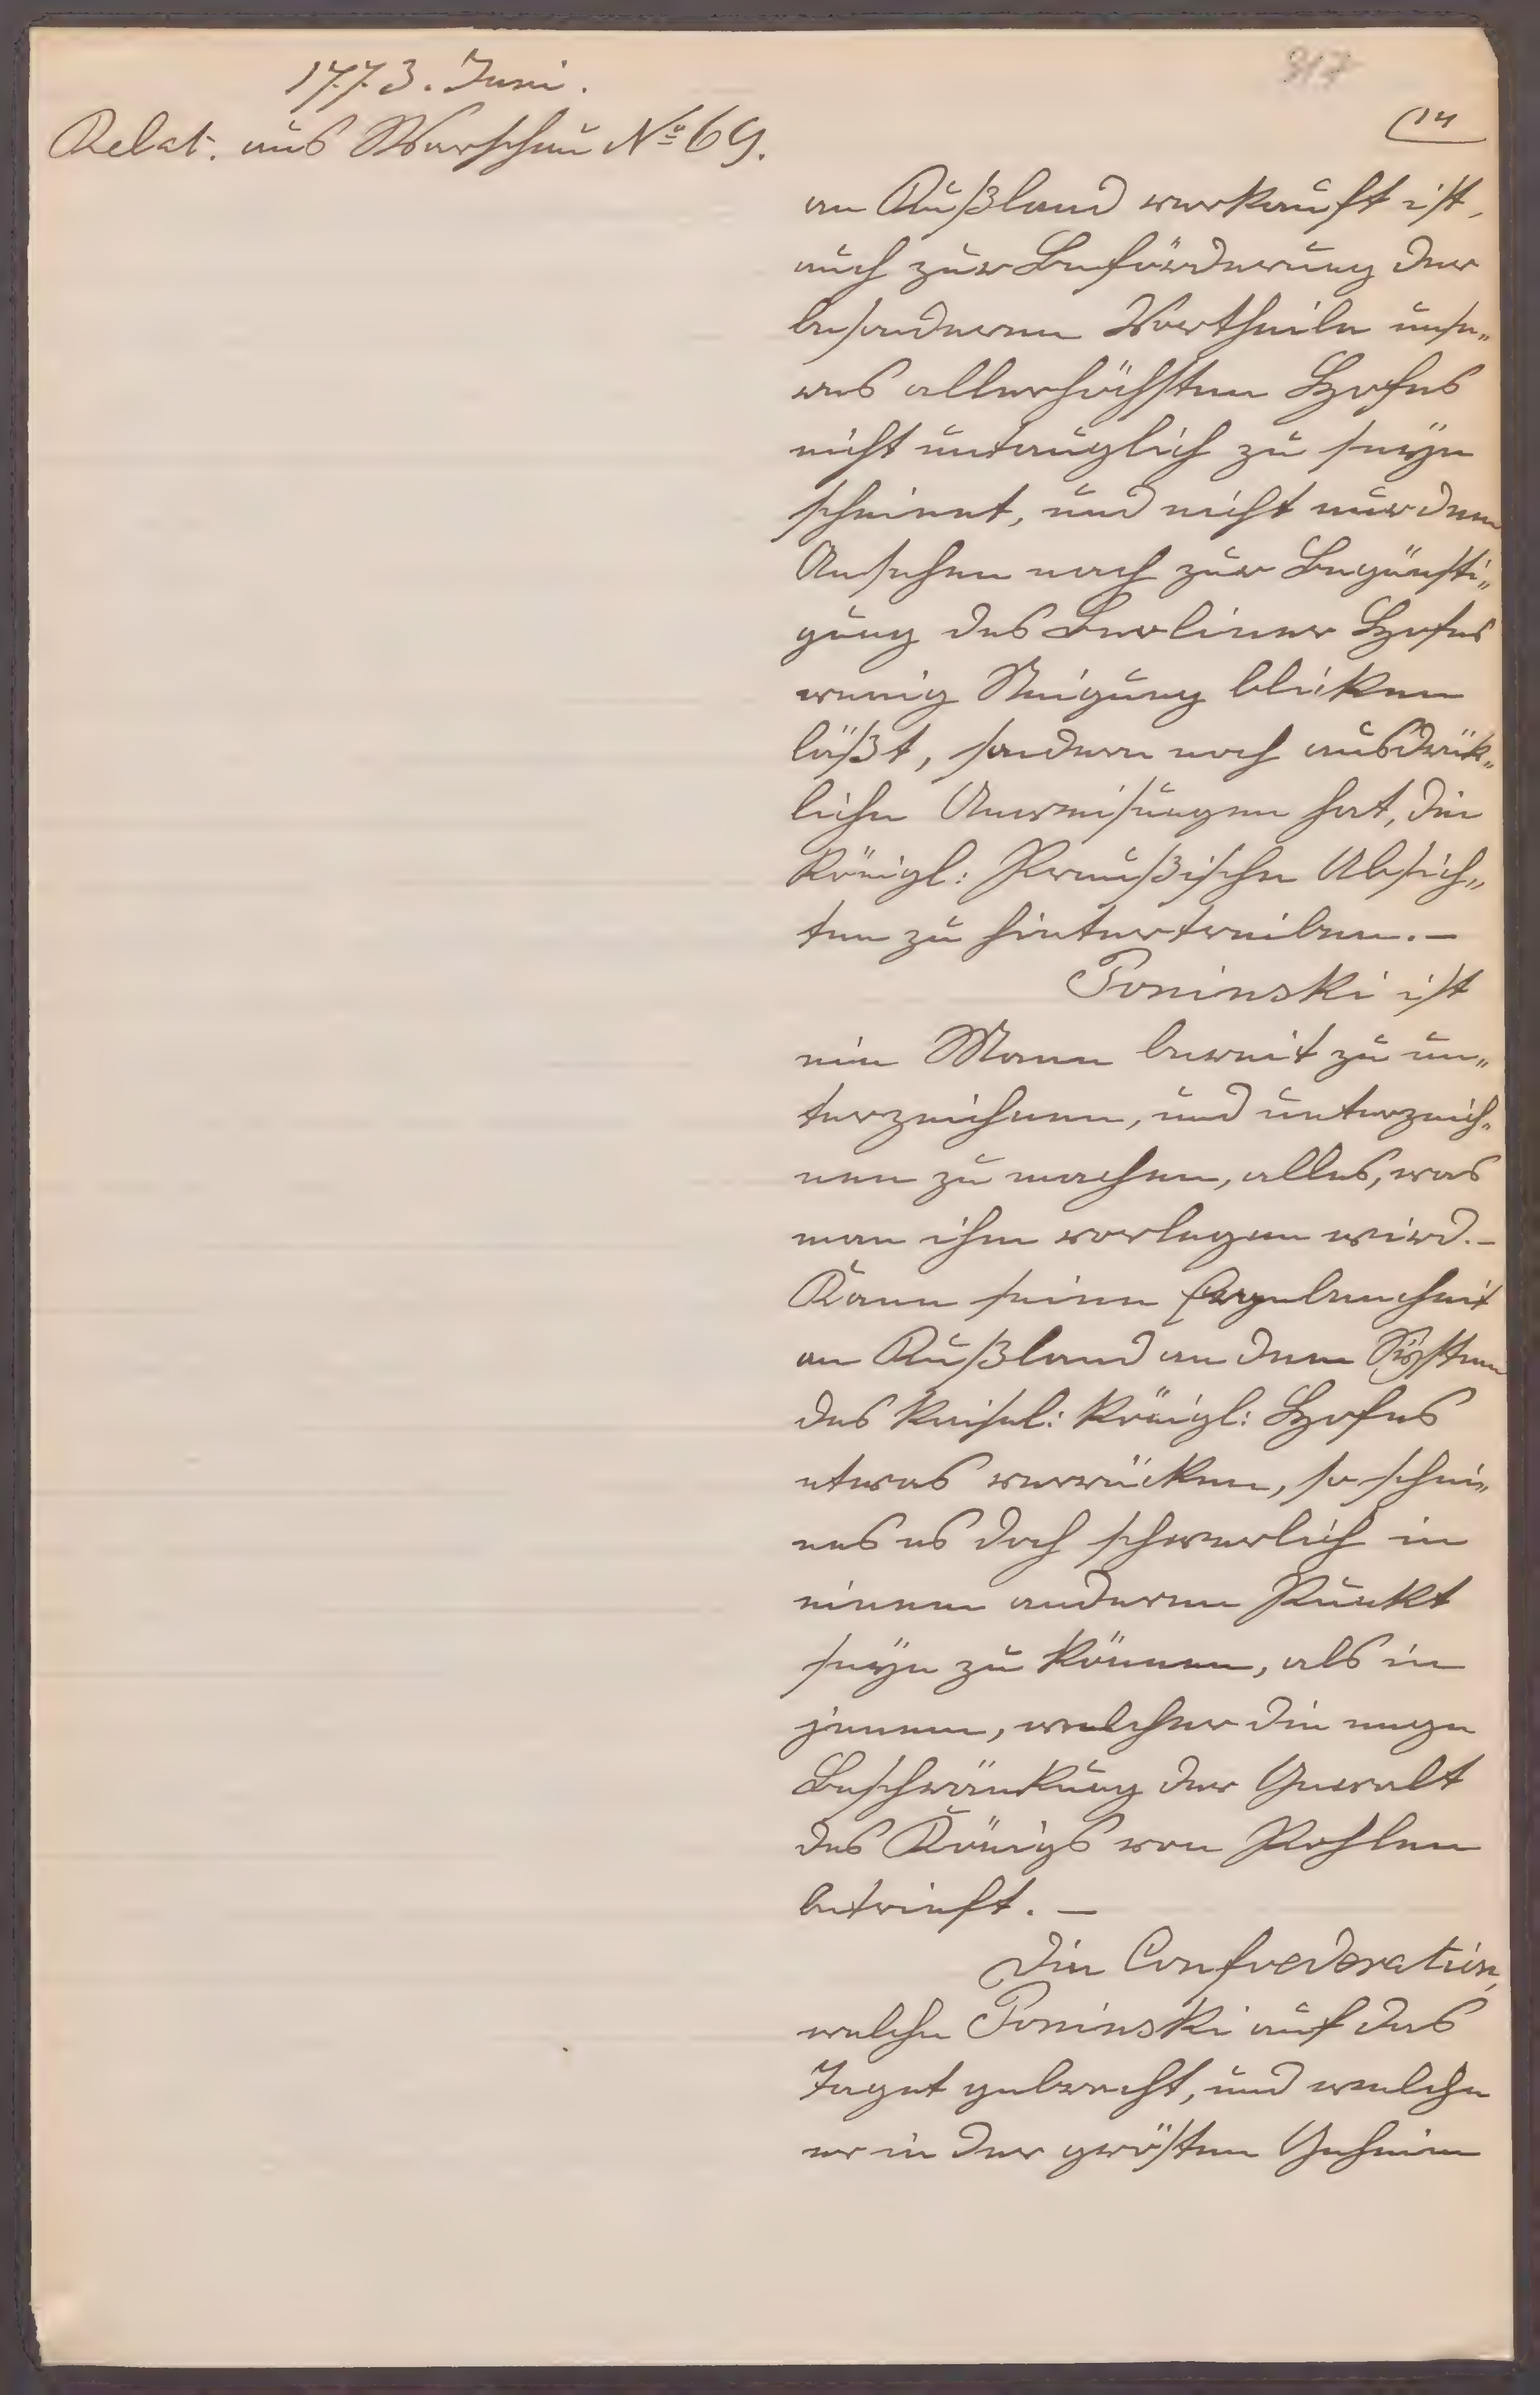 1773. Juni.
317
Relat. aus Warschau No 69.
(14
an Rußland verkauft ist,
auch zur Beförderung der
besonderen Vortheile unse„
res allerhöchsten Hofes
nicht untauglich zu seyn
scheinet, und nicht nur dem
Ansehen nach zur Begünsti„
gung des Berliner Hofes
wenig Neigung blicken
läßt, sondern noch ausdrük„
liche Anweisungen hat, die
Königl: Preußische Absich„
ten zu hintertreiben. —
Poninski ist
ein Mann bereit zu un„
terzeichnen, und unterzeich„
nen zu machen, alles, was
man ihm vorlegen wird. —
Kann seine Ergebenheit
an Rußland an dem Sÿstem
des Kaisel: Königl: Hofes
etwas verrücken, so schei„
nes es doch schwerlich in
einem anderen Punkt
seyn zu können, als in
jenem, welcher die enge
Beschränkung der Gewalt
des Königs von Pohlen
betrieft. —
Die Confoederation,
welche Poninski auf das
Taget gebracht, und welche
er in der grösten Geheim